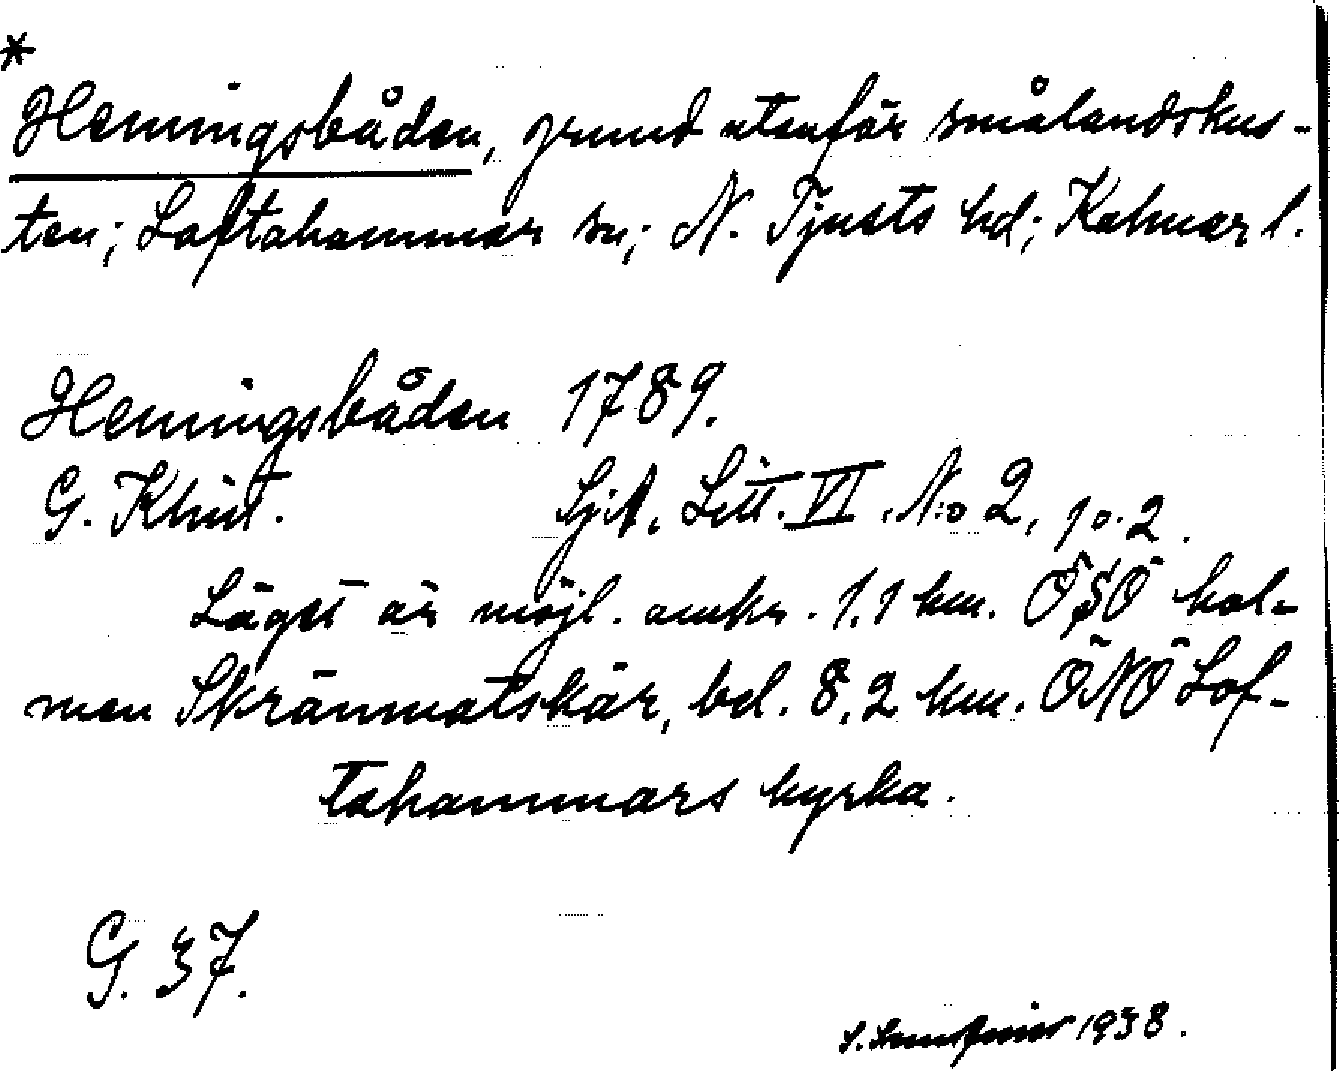 *
Henningsbåden, grund utanför smålandskus-
ten; Loftahammar sn; N. Tjusts hd; Kalmar l.
Henningsbåden 1789.
G. Klint. SjA, Litt. VI, N:o 2, p. 2.
Läget är möjl. omkr. 1,1 km. ÖSÖ hol-
men Skrämmatskär, bel. 8,2 km. ÖNÖ Lof-
tahammars kyrka.
G. 37.
1938.